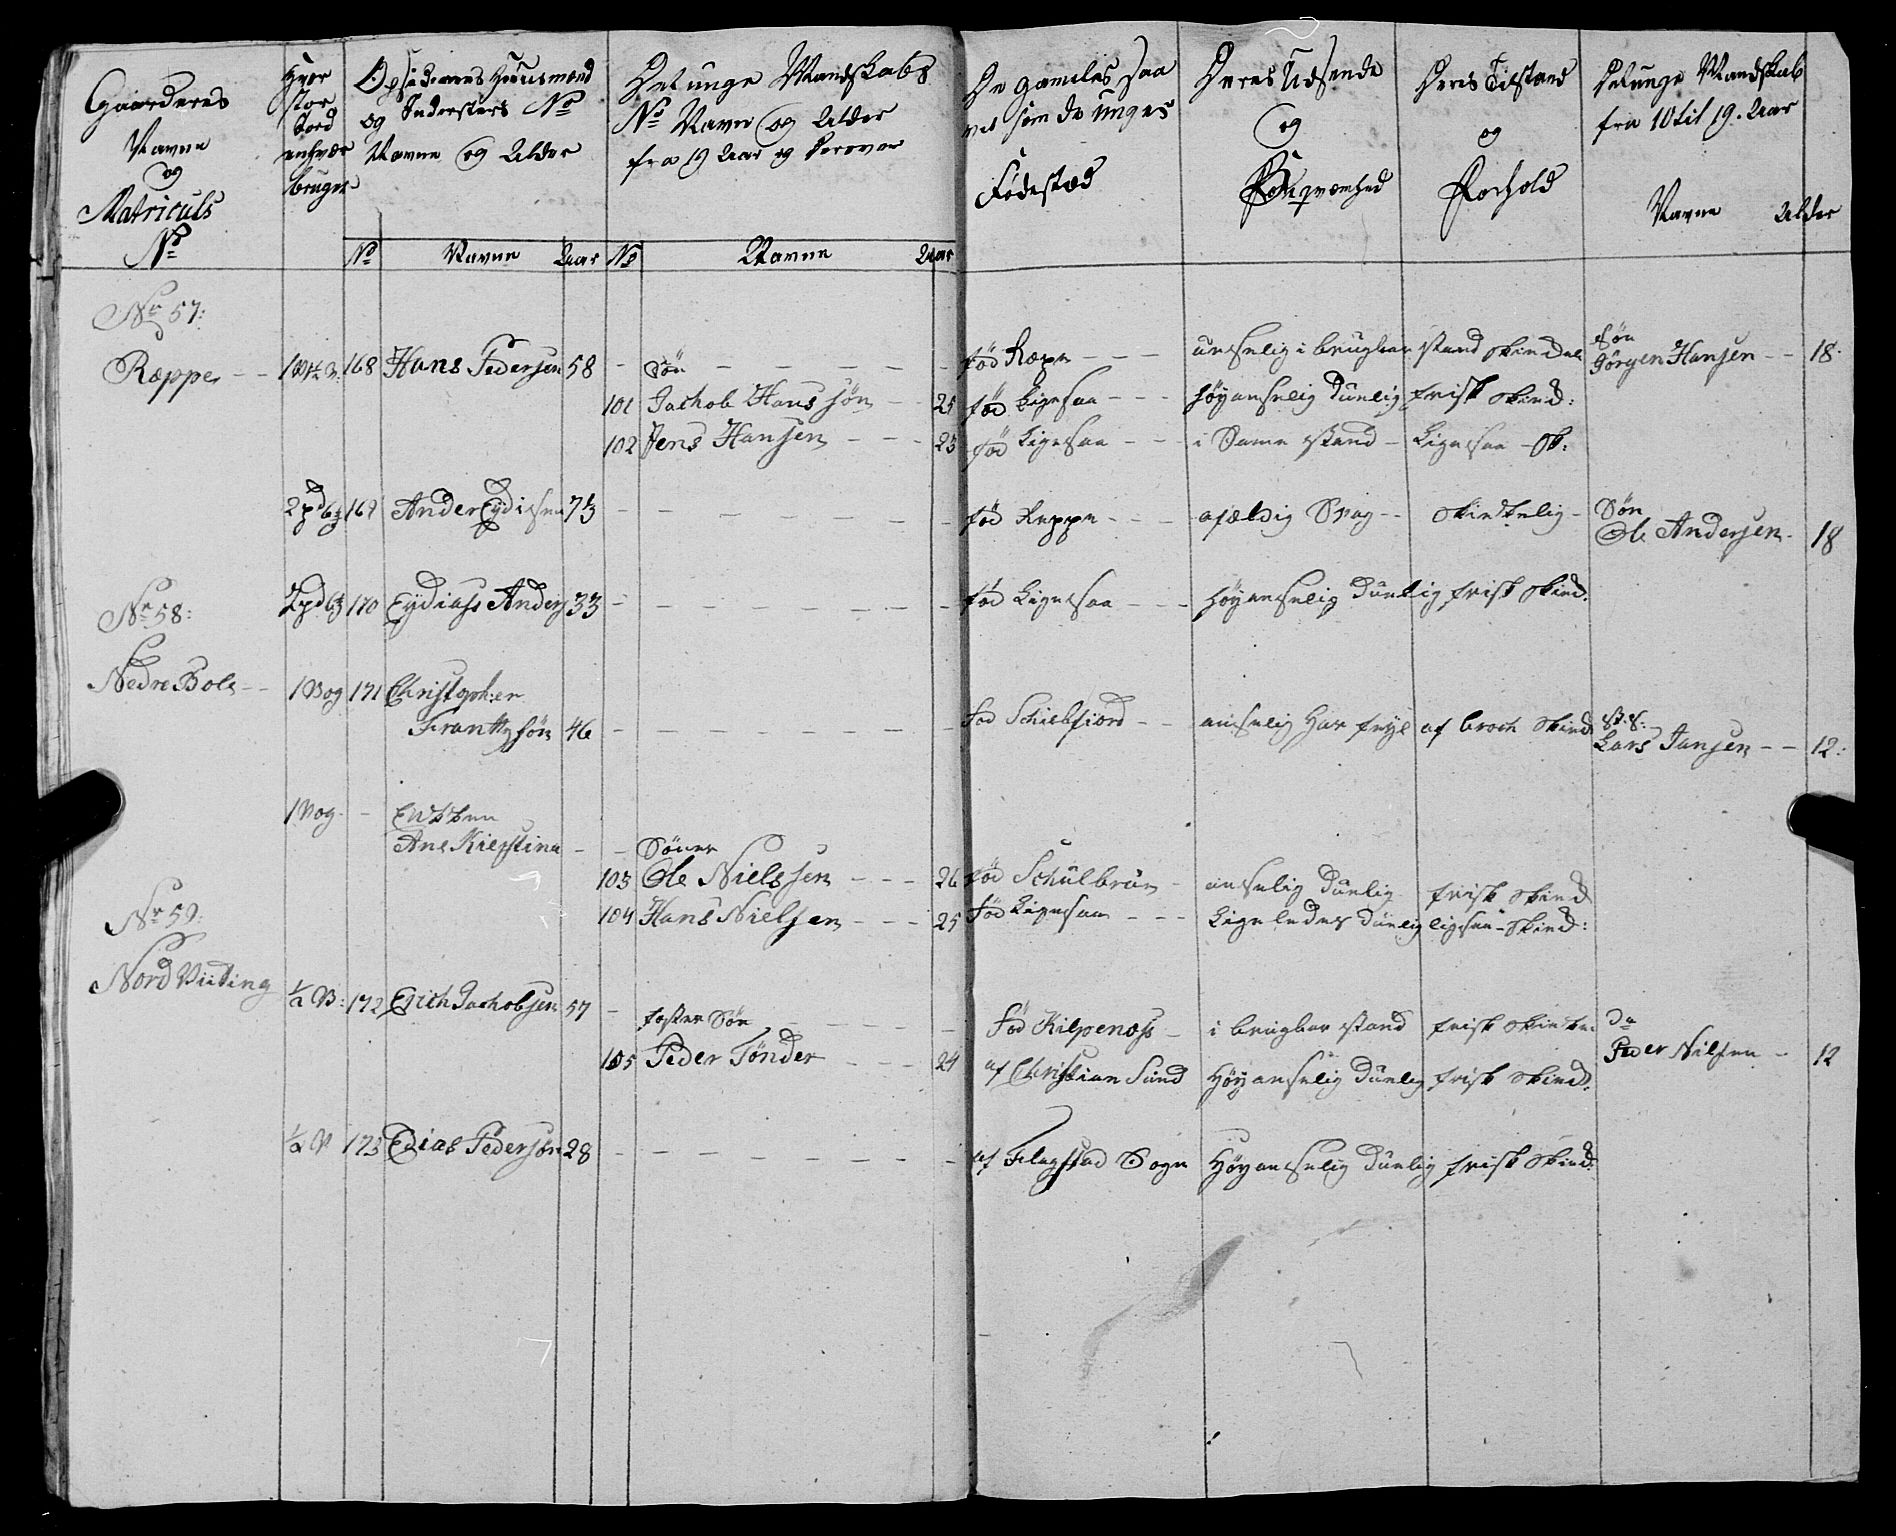 Gaardenes
Navne
og
Matriculs
No
Hvor
stor
Jord
enhver
bruger
Opsiderens Huusmænd
og Indersters No
Navne og Alder
No Navne Aar
Det unge Mandskabs
No Navn og Alder
fra 19 Aar og derover
No Navne Aar
De gamles saa
vel som de unges
Fødested
Deres Udseende
og
Beqvæmhed
Deres Tilstand
og
Forhold
Det unge Mandskab
fra 10 til 19. Aar
Navne Alder
No 57:
Ræppe 168 Hans Pedersen 58 - Søn - født Repe - - - anselig i brugbar stand Skindel
Søn
Jørgen Hansen - - 18.
101 Jachob Hans søn - - 25 fød Ligesaa - - - høyanselig duelig frisk Skind:
102 Jens Hansen - - - 23 fød Ligesaa - - i Same stand - Ligesaa - Sk:
2 pd 169 Ander Eydisen 73 - fød Reppe - - - afældig Svag - - Skickelig -
Søn
Ole Andersen - 18
No 58:
2 pd 170 Eydiass Anders 33 - fød Ligesaa - - - høyanselig duelig frisk Skind.
Nedre Bole - - 1 Vog 171 Christopher
Frantz søn 46 - fød Schielfiord - - anselig har feyl af broch Skind
St. S:
Lars Jansen - - 12:
1 Vog - Enken
Ane Kierstina - - Søner
103 Ole Nielssen - - - 26 fød Schulbrun - anselig duelig frisk Skind
104 Hans Nielsen - - - 25 fød Ligesaa - - - Ligeledes duelig ligesaa - Skind:
No 59:
Nord Viiting ½ V: 172 Erich Jachobsen 57 - foster Søn - fød Kilpenæss - i brugbar stand frisk
do
Peder Nilsen - 12
105 Peder Tønder - - - 24 af Christian Sund Høyanselig duelig frisk Skind:
½ V 173 Edias Pedersøn 28 - af Flagstad Sogn Høyanselig duelig frisk Skind: